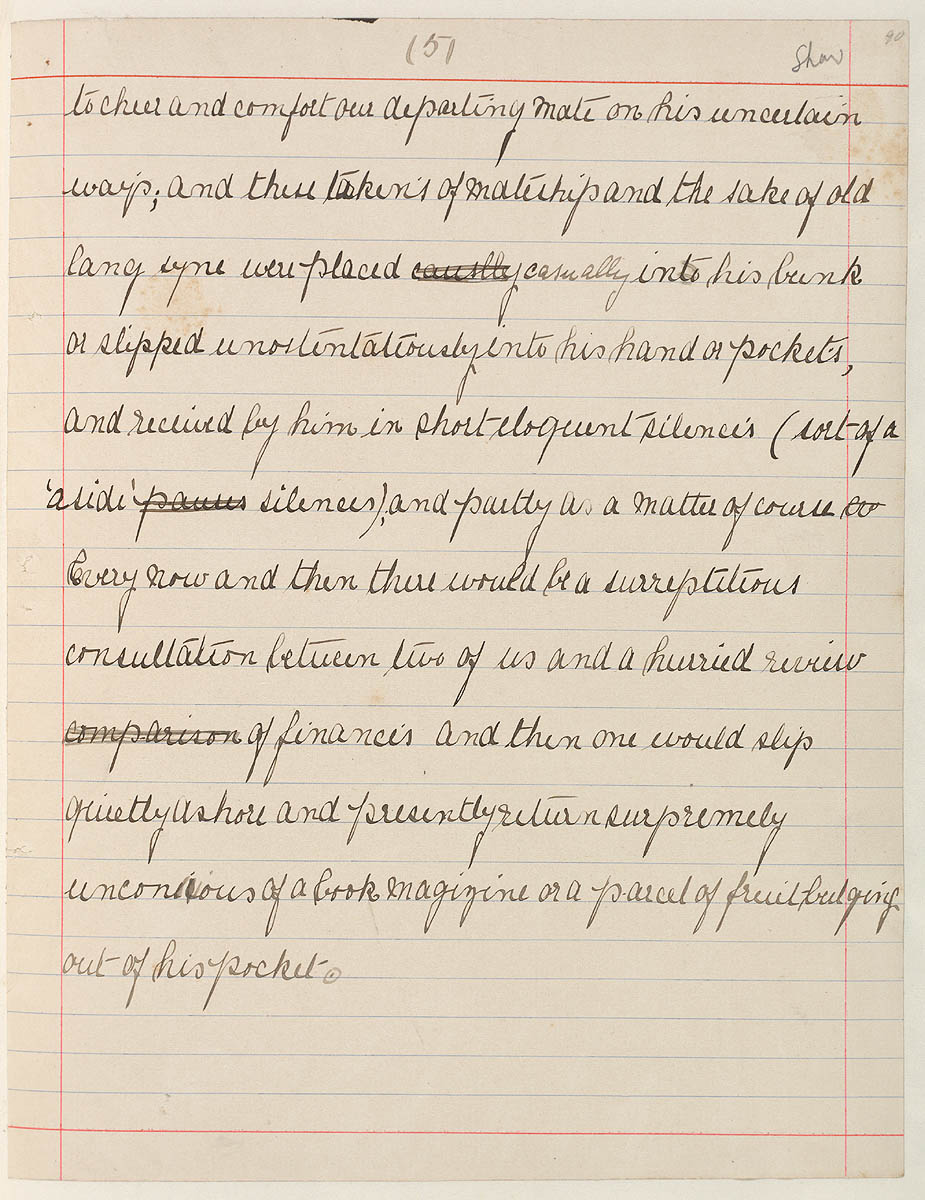 (5)
Shaw
90
to cheer and comfort our departing mate on his uncertain
ways; and these takens of mateship and the sake of old
lang syne were placed causlly casually into his bunk
or slipped unostentatiously into his hand or pockets,
and received by him in short eloquent silences (sort of a
'aside' pauses silences), and partly as a matter of course
Every now and then there would be a surreptitious
consultation between two of us and a hurried review
comparison of finances and then one would slip
quietly ashore and presently return surpremely
unconscious of a book magizine or a parcel of fruit bulging
out of his pocket.